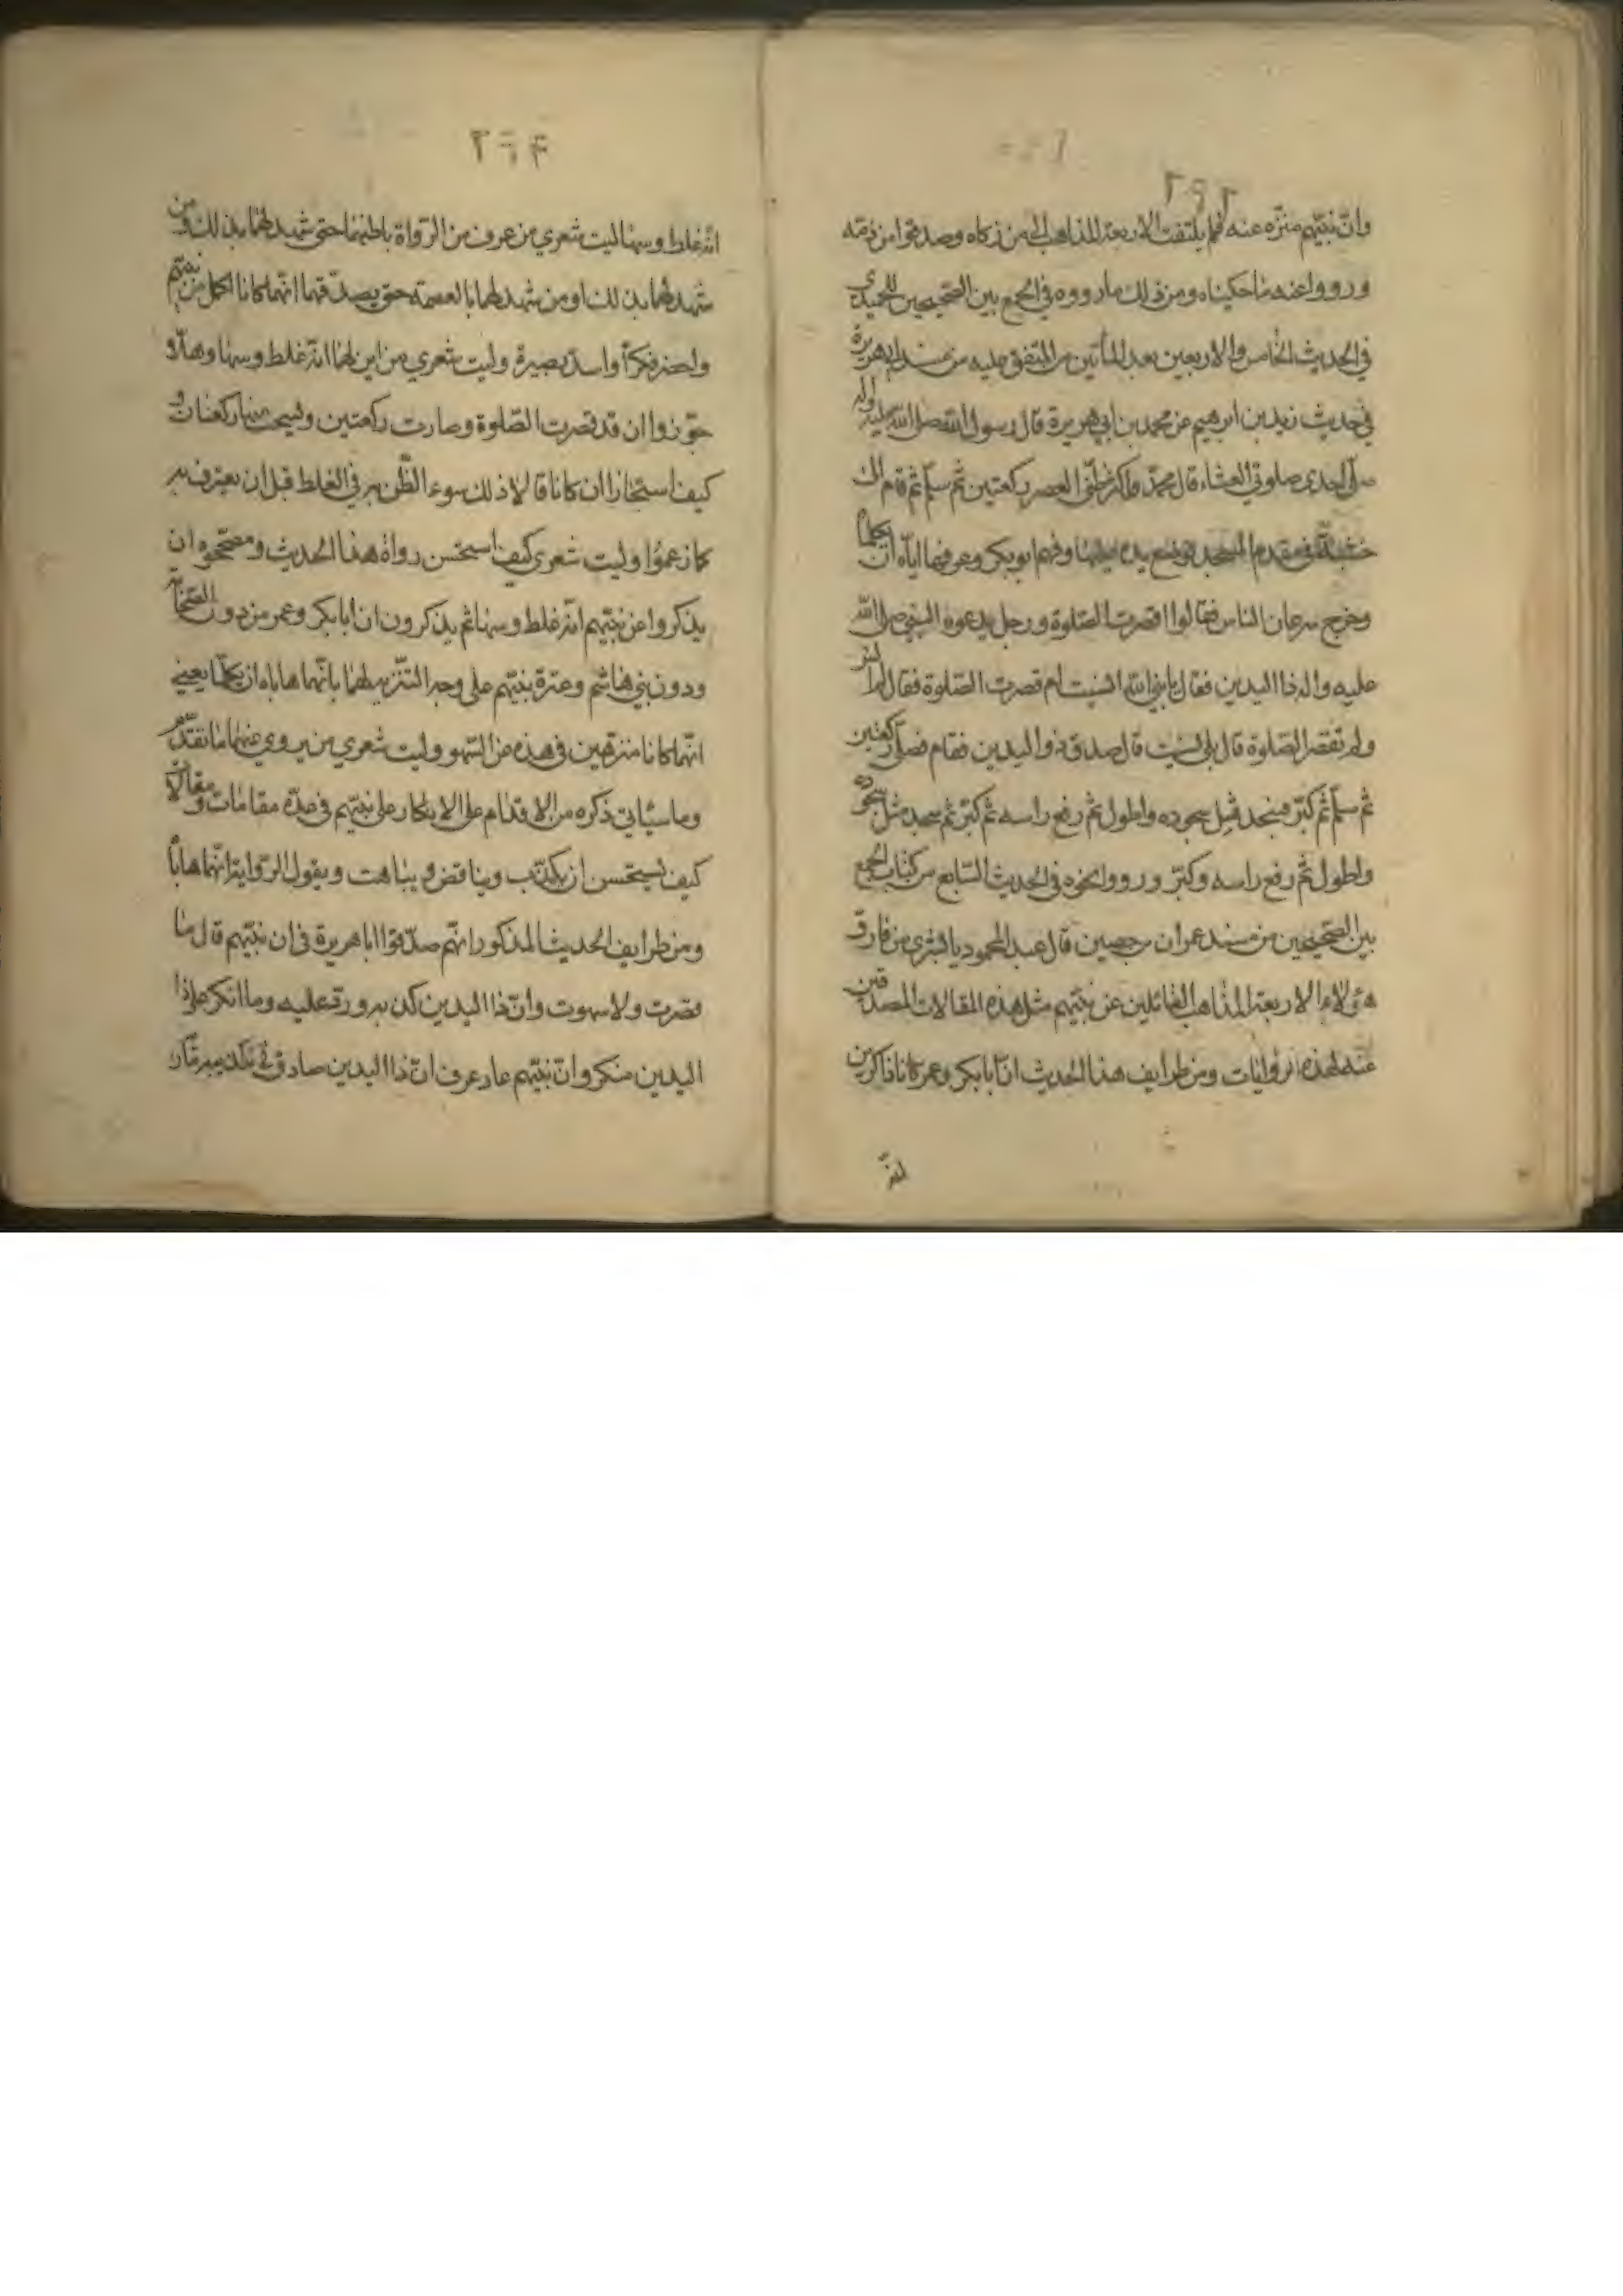 ٢٩٢
وانّ نبيّهم منزّه عنه فلم يلتفت الاربعة المذاهب الى من زكاه وصدقوا من ذمّه
ورووا عنه ما حكيناه ومن ذلك ما رووه في الجمع بين الصحيحين للحميدي
في الحديث الخامس والاربعين بعد المأتين من المتفق عليه من مسند ابي هريرة
في حديث زيد بن ابرهيم عن محمد بن ابي هريرة قال رسول الله صلى الله عليه واله
صلّى احدى صلوتي العشاء قال محمّد واكثر ظنّي العصر ركعتين ثم سلّم ثم قام الى
خشبة في مقدم المسجد فوضع يده عليها وفيهم ابو بكر وعمر فهاباه ان يكلما
وخرج سرعان الناس فقالوا اقصرت الصّلوة ورجل يدعوه النبي صلى الله
عليه واله ذا اليدين فقال يا نبي الله انسيت ام قصرت الصّلوة فقال لم انس
ولم تقصر الصّلوة قال بلى نسيت قال صدق ذو اليدين فقام فصلّى ركعتين
ثم سلّم ثم كبّر فسجد مثل سجوده واطول ثم رفع راسه ثم كبّر ثم سجد مثل سجوده
واطول ثم رفع راسه وكبّر ورووا نحوه في الحديث السّابع من كتاب الجمع
بين الصّحيحين من مسند عمران بن حصين قال عبد المحمود يا بشرى من فارق
هؤلاء الاربعة المذاهب القائلين عن نبيّهم مثل هذه المقالات المصدقين
عنه لهذه الروايات ومن طرايف هذا الحديث انّ ابا بكر وعمر كانا ذاكرين
٢٩٣
انّه غلط وسها ليت شعري من عرف من الرّواة باطنهما حتى شهد لهما بذلك و من
شهد لهما بذلك او من شهد لهما بالعصمة حتى يصدّقهما انّهما كانا اكمل من نبيّهم
واحضر فكراً واسدّ بصيرة وليت شعري من اين لهما انّه غلط وسها وهلّا
جوّزوا ان قد قصرت الصّلوة وصارت ركعتين ونسخت منها ركعتان و
كيف استجازا ان كانا قالا ذلك سوء الظّن به في الغلط قبل ان يعترف به
كما زعموا وليت شعري كيف استحسن رواة هذا الحديث ومصححوه ان
يذكروا عن نبيّهم انّه غلط وسها ثم يذكرون ان ابا بكر وعمر من دون الصحابة
ودون بني هاشم وعترة نبيّهم على وجه التنّزيه لهما بانّهما هاباه ان يكلّما يعني
انّهما كانا منزهين في هذه عن السّهو وليت شعري من يروي عنهما ما تقدّم
وما سيأتي ذكره من الاقدام على الانكار على نبيّهم في عدّة مقامات ومقالات
كيف يستحسن ان يكذب ويناقض ويباهت ويقول الرّواية انّهما هابا
ومن طرايف الحديث المذكور انّهم صدّقوا ابا هريرة في ان نبيّهم قال ما
قصرت ولا سهوت وانّ ذا اليدين كذبه وردّ عليه وما انكر على ذا
اليدين منكر وانّ نبيّهم عاد عرف انّ ذا اليدين صادق في تكذيبه